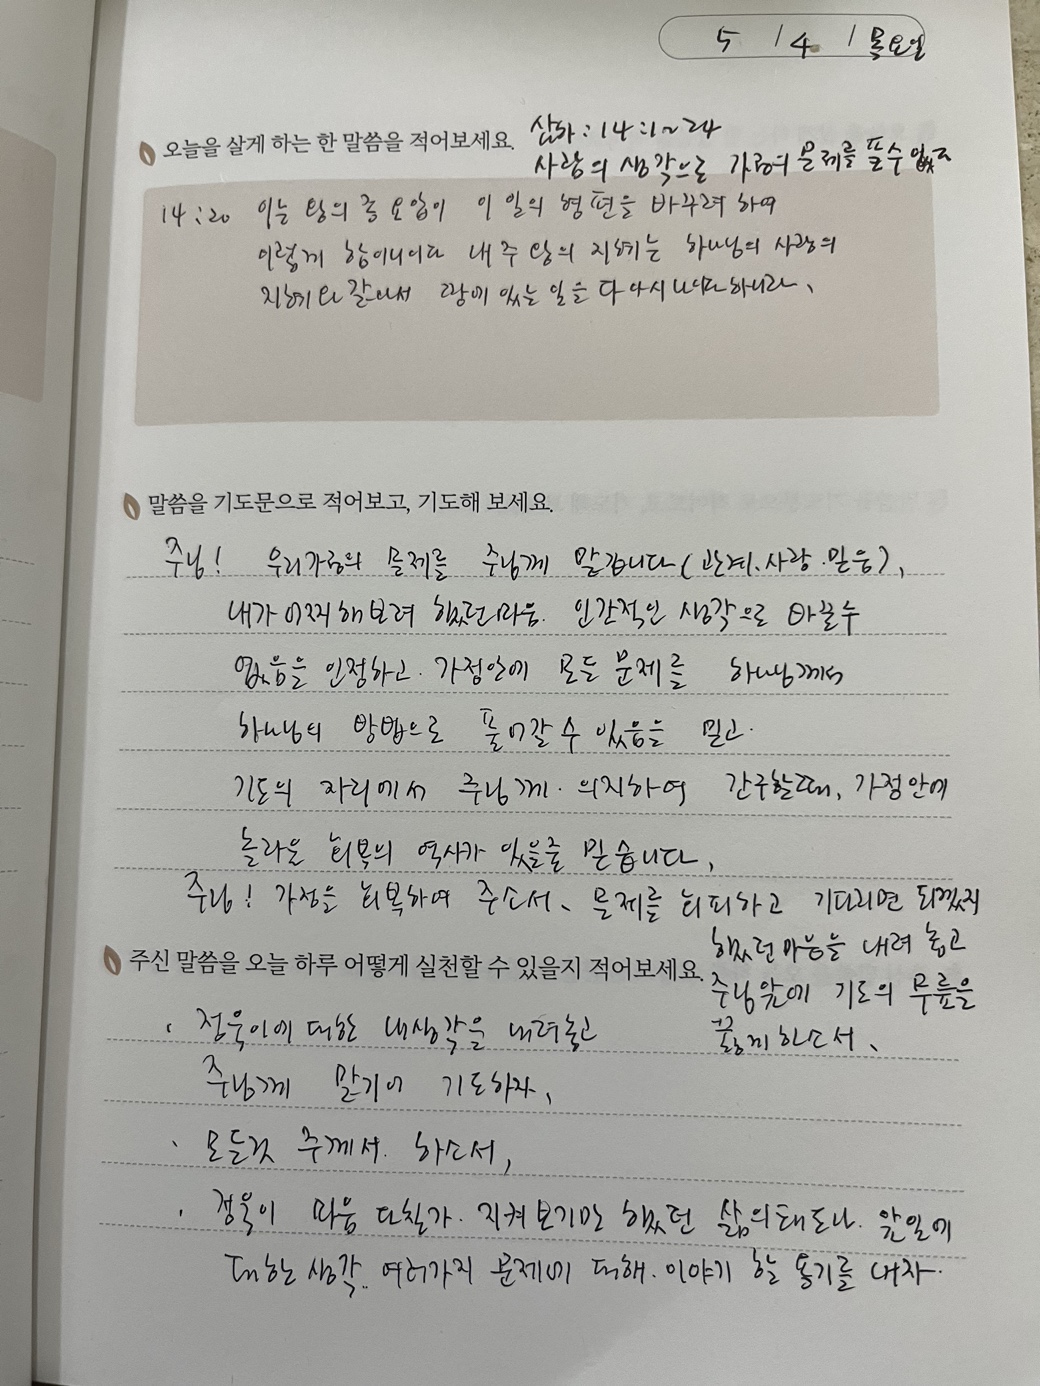 5 / 4 / 목요일
오늘을 살게 하는 한 말씀을 적어보세요.
삼하 : 14 : 1~24
사람의 생각으로 가정의 문제를 풀수 없고
14:20 이는 왕의 종 요압이 이 일의 형편을 바꾸려 하여
이렇게 함이니이다 내 주 왕의 지혜는 하나님의 사람의
지혜와 같아서 땅에 있는 일을 다 아시나이다 하니라.
말씀을 기도문으로 적어보고, 기도해 보세요.
주님! 우리가정의 문제를 주님께 맡깁니다 (관계.사랑.믿음).
내가 어찌해보려 했던마음. 인간적인 생각으로 바꿀수
없음을 인정하고. 가정안에 모든 문제를 하나님께서
하나님의 방법으로 풀어갈 수 있음을 믿고.
기도의 자리에서 주님께. 의지하여 간구할때, 가정안에
놀라운 회복의 역사가 있을줄 믿습니다.
주님! 가정을 회복하여 주소서. 문제를 회피하고 기다리면 되겠지
했던마음을 내려 놓고
주님앞에 기도의 무릎을
꿇게 하소서.
주신 말씀을 오늘 하루 어떻게 실천할 수 있을지 적어보세요.
· 정욱이에 대한 내생각을 내려놓고
주님께 맡기어 기도하자.
· 모든것 주께서. 하소서,
· 정욱이 마음 다칠가. 지켜보기만 했던 삶의태도나. 앞일에
대한 생각.. 여러가지 문제에 대해. 이야기 할 용기를 내자.